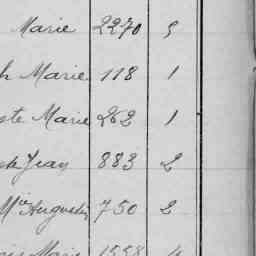 Marie 2270 5
h Marie 118 1
ste Marie 262 1
Jean 883 2
Mie Augustin 750 2
Marie 1558 4